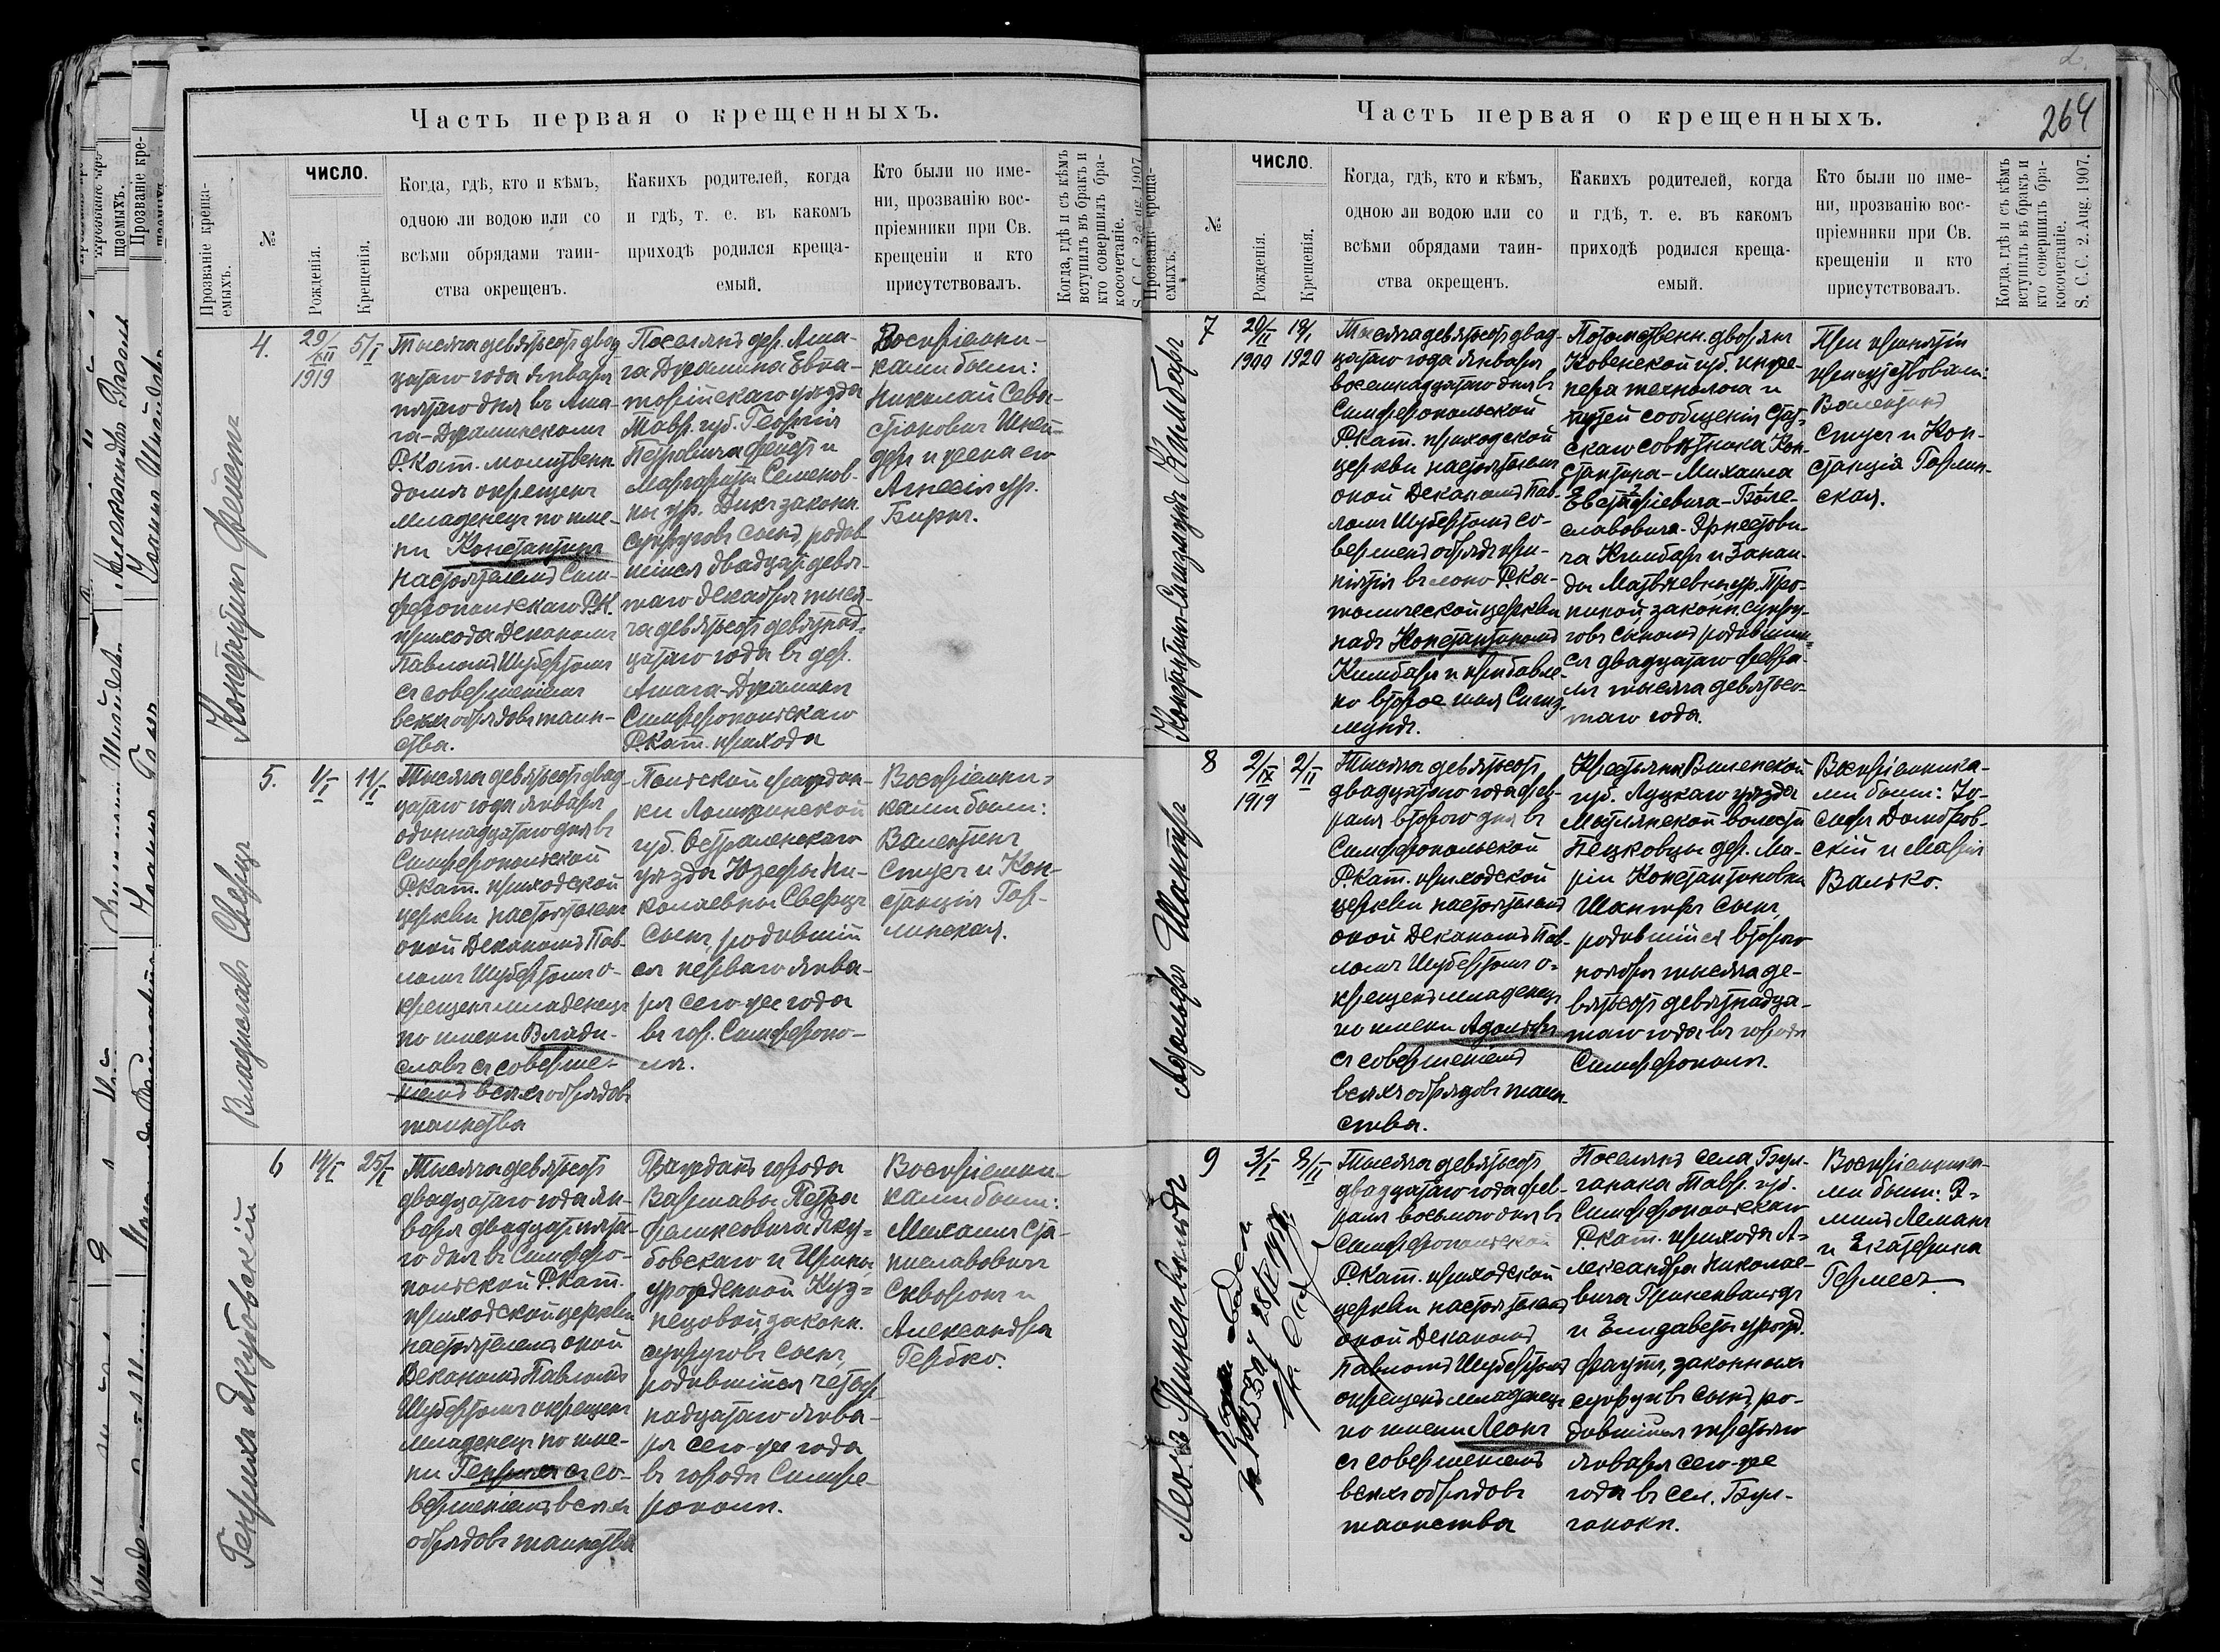 Часть первая о крещенныхъ.
Прозваніе креща-
емыхъ.
№
ЧИСЛО.
Рожденія.
Крещенія.
Когда, гдѣ, кто и кѣмъ,
одною ли водою или со
всѣми обрядами таин-
ства окрещенъ.
Какихъ родителей, когда
и гдѣ, т. е. въ какомъ
приходѣ родился креща-
емый.
Кто были по име-
ни, прозванію вос-
пріемники при Св.
крещеніи и кто
присутствовалъ.
Когда, гдѣ и съ кѣмъ
вступилъ въ бракъ и
кто совершилъ бра-
косочетаніе.
Константинъ Фейстъ
4.
29/XII
1919
5/I
Тысяча девятьсотъ двад-
цатаго года января
пятаго дня въ Ата-
га-Джаминскомъ
Р.Кат. молитвенн.
домѣ окрещенъ
младенецъ по име-
ни Константинъ
настоятелемъ Сим-
феропольскаго Р.К.
прихода Деканомъ
Павломъ Шубертомъ
съ совершеніемъ
всѣхъ обрядовъ таин-
ства.
Поселянъ дер. Ата-
га Джамина Евпа-
торійскаго уѣзда
Тавр. губ. Георгія
Петровича Фейстъ и
Маргариты Семенов-
ны ур. Дикъ законн.
супруговъ сынъ, родив-
шійся двадцать девя-
таго декабря тыся-
ча девятьсотъ девятнад-
цатаго года въ дер.
Атага-Джамин
Симферопольскаго
Р.Кат. прихода
Воспріемни-
ками были:
Николай Сева-
стіановичъ Шней-
деръ и жена его
Агнесія ур.
Биркъ.
Владиславъ Сверцъ
5.
1/I
11/I
Тысяча девятьсотъ двад-
цатаго года января
одиннадцатаго дня въ
Симферопольской
Р.Кат. приходской
церкви настоятелемъ
оной Деканомъ Пав-
ломъ Шубертомъ о-
крещенъ младенецъ
по имени Влади-
славъ съ соверше-
ніемъ всѣхъ обрядовъ
таинства
Польской граждан-
ки Ломжинской
губ. Остроленскаго
уѣзда Юзефы Ни-
колаевны Сверцъ
сынъ, родившій-
ся перваго янва-
ря сего-же года
въ гор. Симферопо-
лѣ.
Воспріемни-
ками были:
Валентинъ
Спусъ и Кон-
станція Гор-
линская.
Генрихъ Якубовскій
6
14/I
25/I
Тысяча девятьсотъ
двадцатаго года ян-
варя двадцать пята-
го дня въ Симферо-
польской Р.Кат.
приходской церкви
настоятелемъ оной
Деканомъ Павломъ
Шубертомъ окрещенъ
младенецъ по име-
ни Генрихъ съ со-
вершеніемъ всѣхъ
обрядовъ таинства
Гражданъ города
Варшавы Петра
Феликсовича Яку-
бовскаго и Ирины
урожденной Куз-
нецовой, законн.
супруговъ сынъ,
родившійся четыр-
надцатаго янва-
ря сего-же года
въ городѣ Симфе-
рополѣ.
Воспріемни-
ками были:
Михаилъ Ста-
ниславовичъ
Скворонъ и
Александра
Гербко.
Часть первая о крещенныхъ.
264
Прозваніе креща-
емыхъ.
№
ЧИСЛО.
Рожденія.
Крещенія.
Когда, гдѣ, кто и кѣмъ,
одною ли водою или со
всѣми обрядами таин-
ства окрещенъ.
Какихъ родителей, когда
и гдѣ, т. е. въ какомъ
приходѣ родился креща-
емый.
Кто были по име-
ни, прозванію вос-
пріемники при Св.
крещеніи и кто
присутствовалъ.
Когда, гдѣ и съ кѣмъ
вступилъ въ бракъ и
кто совершилъ бра-
косочетаніе.
S. C. C. 2. Aug. 1907.
Константинъ-Сигизмундъ Кимбаръ
7
20/II
1900
18/I
1920
Тысяча девятьсотъ двад-
цатаго года января
восемнадцатаго дня въ
Симферопольской
Р.Кат. приходской
церкви настоятелемъ
оной Деканомъ Пав-
ломъ Шубертомъ со-
вершенъ обрядъ при-
нятія въ лоно Р.Ка-
толической церкви
надъ Константиномъ
Кимбаръ и прибавле-
но второе имя Сигиз-
мундъ.
Потомственн. дворянъ
Ковенской губ. инже-
нера технолога и
путей сообщенія стат-
скаго совѣтника Кон-
стантина-Михаила
Евстафіевича-Боле-
славовича-Эрнестови-
ча Кимбаръ и Зинаи-
ды Матвѣевны ур. Про-
ниной, законн. супру-
говъ сыномъ родившим-
ся двадцатаго февра-
ля тысяча девятьсо-
таго года.
При принятіи
присутствовали:
Валентинъ
Спусъ и Кон-
станція Горлин-
ская.
Адольфъ Шантыръ
8
2/IX
1919
2/II
Тысяча девятьсотъ
двадцатаго года фев-
раля второго дня въ
Симферопольской
Р.Кат. приходской
церкви настоятелемъ
оной Деканомъ Пав-
ломъ Шубертомъ о-
крещенъ младенецъ
по имени Адольфъ
съ совершеніемъ
всѣхъ обрядовъ таин-
ства.
Крестьянки Виленской
губ. Луцкаго уѣзда
волости
дер. Ма-
ріи Константиновны
Шантыръ сынъ,
родившійся второго
ноября тысяча де-
вятьсотъ девятнадца-
таго года въ городѣ
Симферополѣ.
Воспріемника-
ми были: Іо-
сифъ Домбров-
скій и Марія
Валько.
Леонъ Гриненвальдъ
9
3/I
8/II
Тысяча девятьсотъ
двадцатаго года фев-
раля восьмого дня въ
Симферопольской
Р.Кат. приходской
церкви настоятелемъ
оной Деканомъ
Павломъ Шубертомъ
окрещенъ младенецъ
по имени Леонъ
съ совершеніемъ
всѣхъ обрядовъ
таинства
Поселянъ села Бул-
ганака Тавр. губ.
Симферопольскаго
Р.Кат. прихода А-
лександра Николае-
вича Гриненвальдъ
и Елизаветы урожд.
Фаутъ, законныхъ
супруговъ сынъ, ро-
дившійся третьяго
января сего-же
года въ сел. Бул-
ганакѣ.
Воспріемника-
ми были: Э-
милъ Леманъ
и Екатерина
Гермесъ